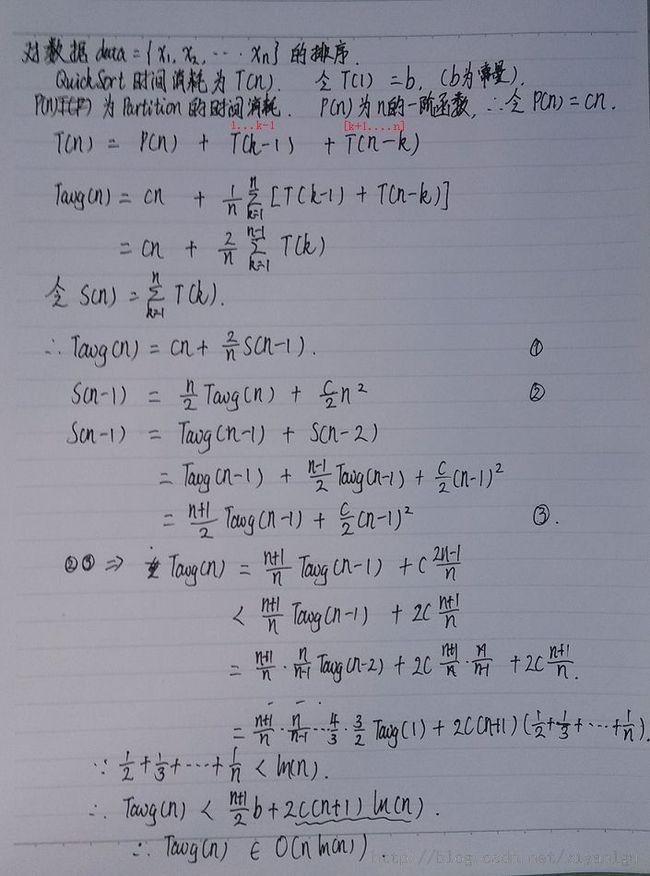 对数据 data = {x₁, x₂, ⋯ xₙ} 的排序.
QuickSort 时间消耗为 T(n). 令 T(1) = b, (b为常量).
P(n) 为 Partition 的时间消耗. P(n) 为 n 的一阶函数, ∴令 P(n) = cn.
1...k-1 [k+1....n]
T(n) = P(n) + T(k-1) + T(n-k)
Tavg(n) = cn + 1/n ∑_{k=1}^{n} [T(k-1) + T(n-k)]
= cn + 2/n ∑_{k=1}^{n-1} T(k)
令 S(n) = ∑_{k=1}^{n} T(k).
∴ Tavg(n) = cn + 2/n S(n-1). ①
S(n-1) = n/2 Tavg(n) + c/2 n² ②
S(n-1) = Tavg(n-1) + S(n-2)
= Tavg(n-1) + (n-1)/2 Tavg(n-1) + c/2 (n-1)²
= (n+1)/2 Tavg(n-1) + c/2 (n-1)² ③.
②③ ⇒ Tavg(n) = (n+1)/n Tavg(n-1) + c (2n-1)/n
< (n+1)/n Tavg(n-1) + 2c (n+1)/n
= (n+1)/n · n/(n-1) Tavg(n-2) + 2c (n+1)/n · n/(n-1) + 2c (n+1)/n.
= (n+1)/n · n/(n-1) ⋯ 4/3 · 3/2 Tavg(1) + 2c(n+1) (1/2 + 1/3 + ⋯ + 1/n).
∵ 1/2 + 1/3 + ⋯ + 1/n < ln(n).
∴ Tavg(n) < (n+1)/2 b + 2c(n+1) ln(n).
∴ Tavg(n) ∈ O(n ln(n))